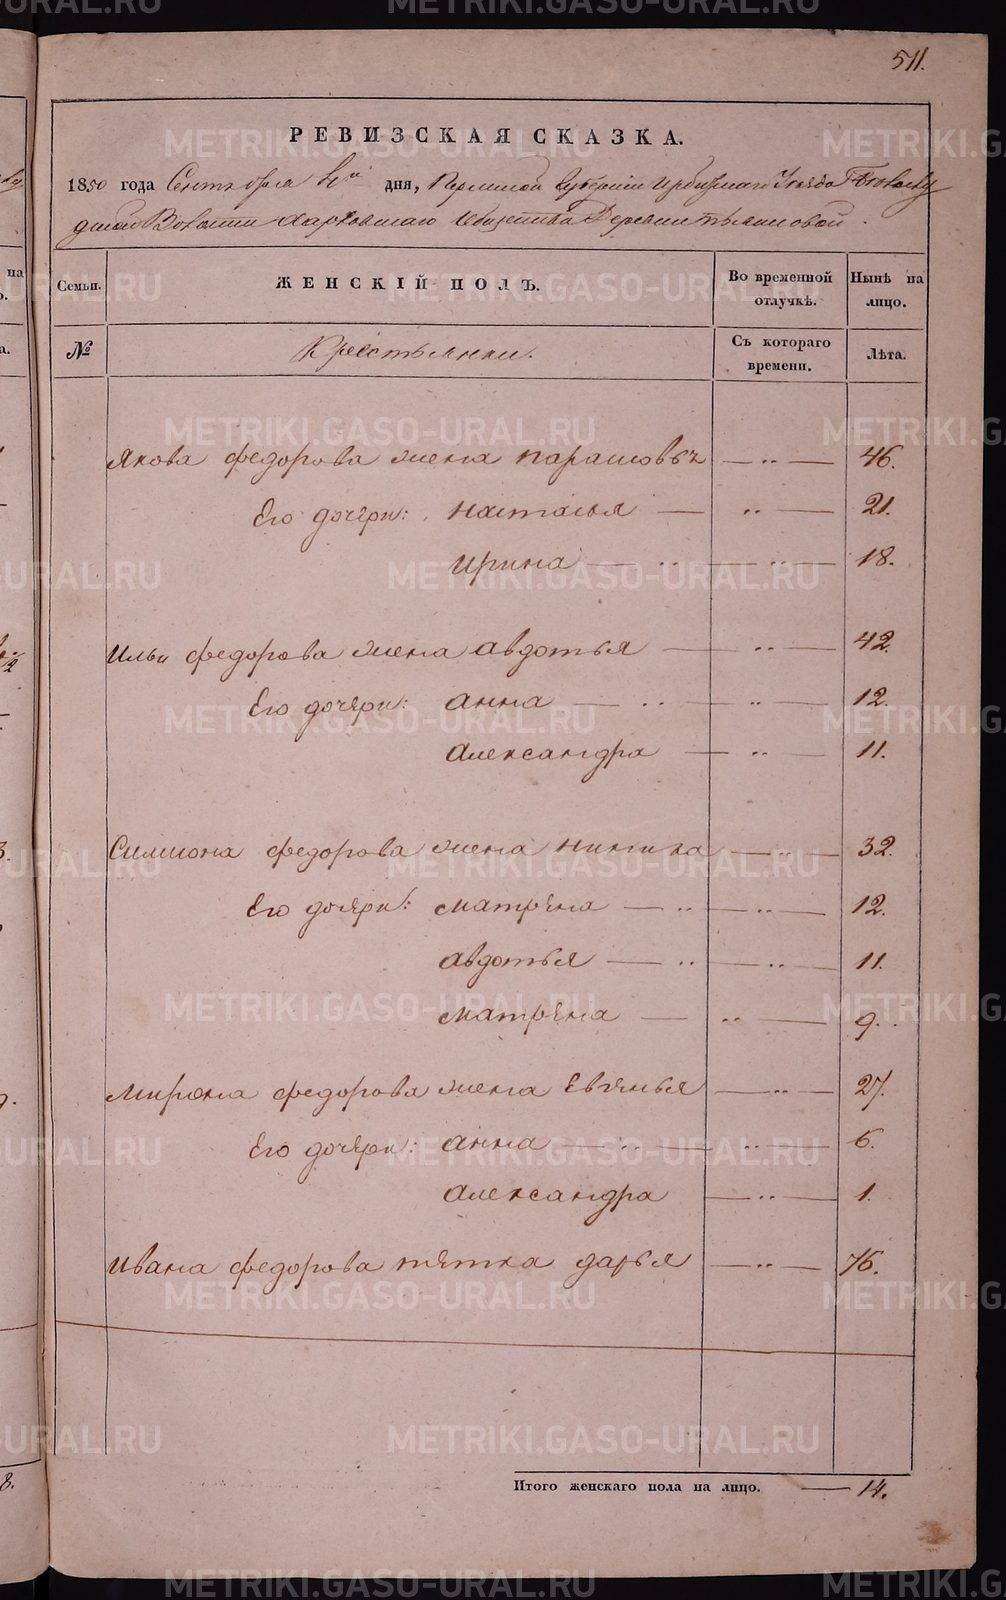 511.
РЕВИЗСКАЯ СКАЗКА.
1850 года Сентября дня, Пермской Губернии Ирбитскаго Уезда
Волости Харловскаго Общества Деревни
Семьи. ЖЕНСКІЙ ПОЛЪ. Во временной отлучкѣ. Нынѣ на лицо.
№ Крестьянки. Съ котораго времени. Лѣта.
Якова федорова жена парасковъ — „ — 46.
Его дочери: наталья — „ — 21.
ирина — „ — „ — 18.
Ильи федорова жена авдотья — „ — 42.
Его дочери: анна — „ — „ — 12.
александра — „ — 11.
Симиона федорова жена — „ — 32.
Его дочери: матрена — „ — „ — 12.
авдотья — „ — „ — 11.
матрена — „ — 9.
мирона федорова жена — „ — 27.
Его дочери: анна — „ — „ — 6.
александра — „ — 1.
ивана федорова тетка дарья — „ — 76.
Итого женскаго пола на лицо. — 14.
METRIKI.GASO-URAL.RU